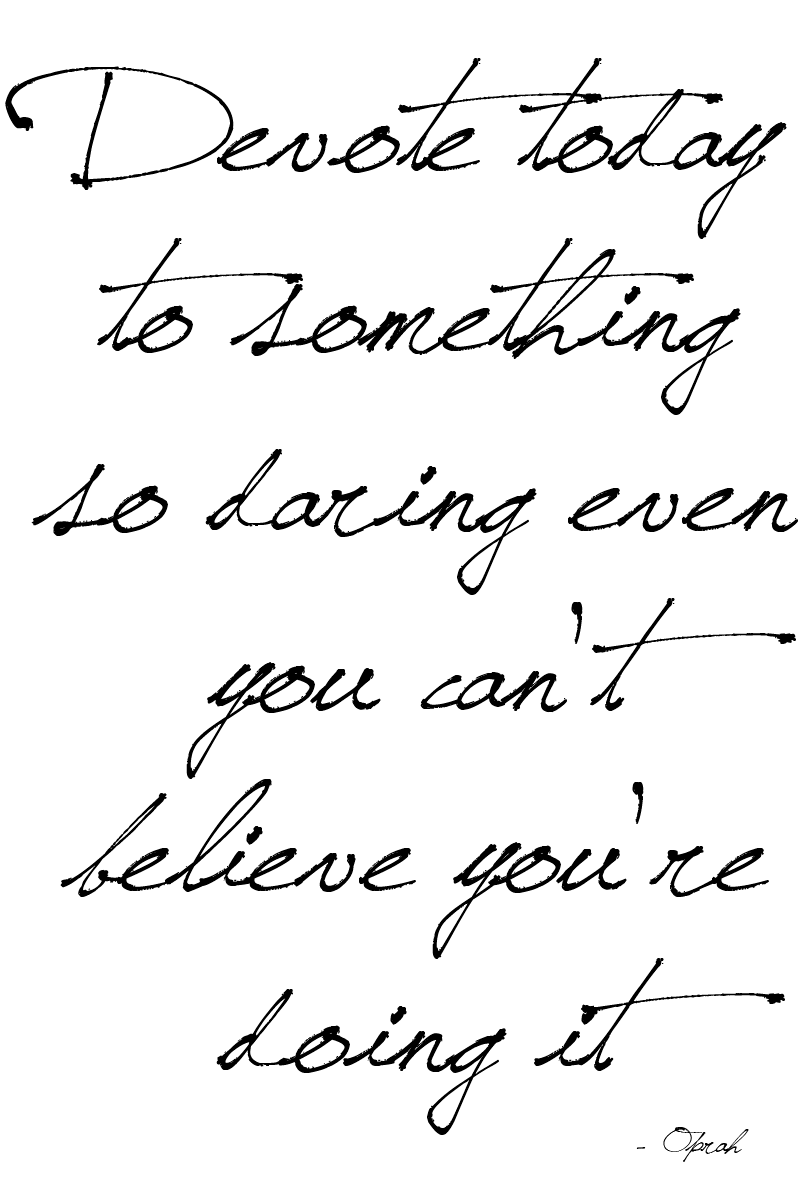 Devote today
to something
so daring even
you can't
believe you're
doing it
- Oprah